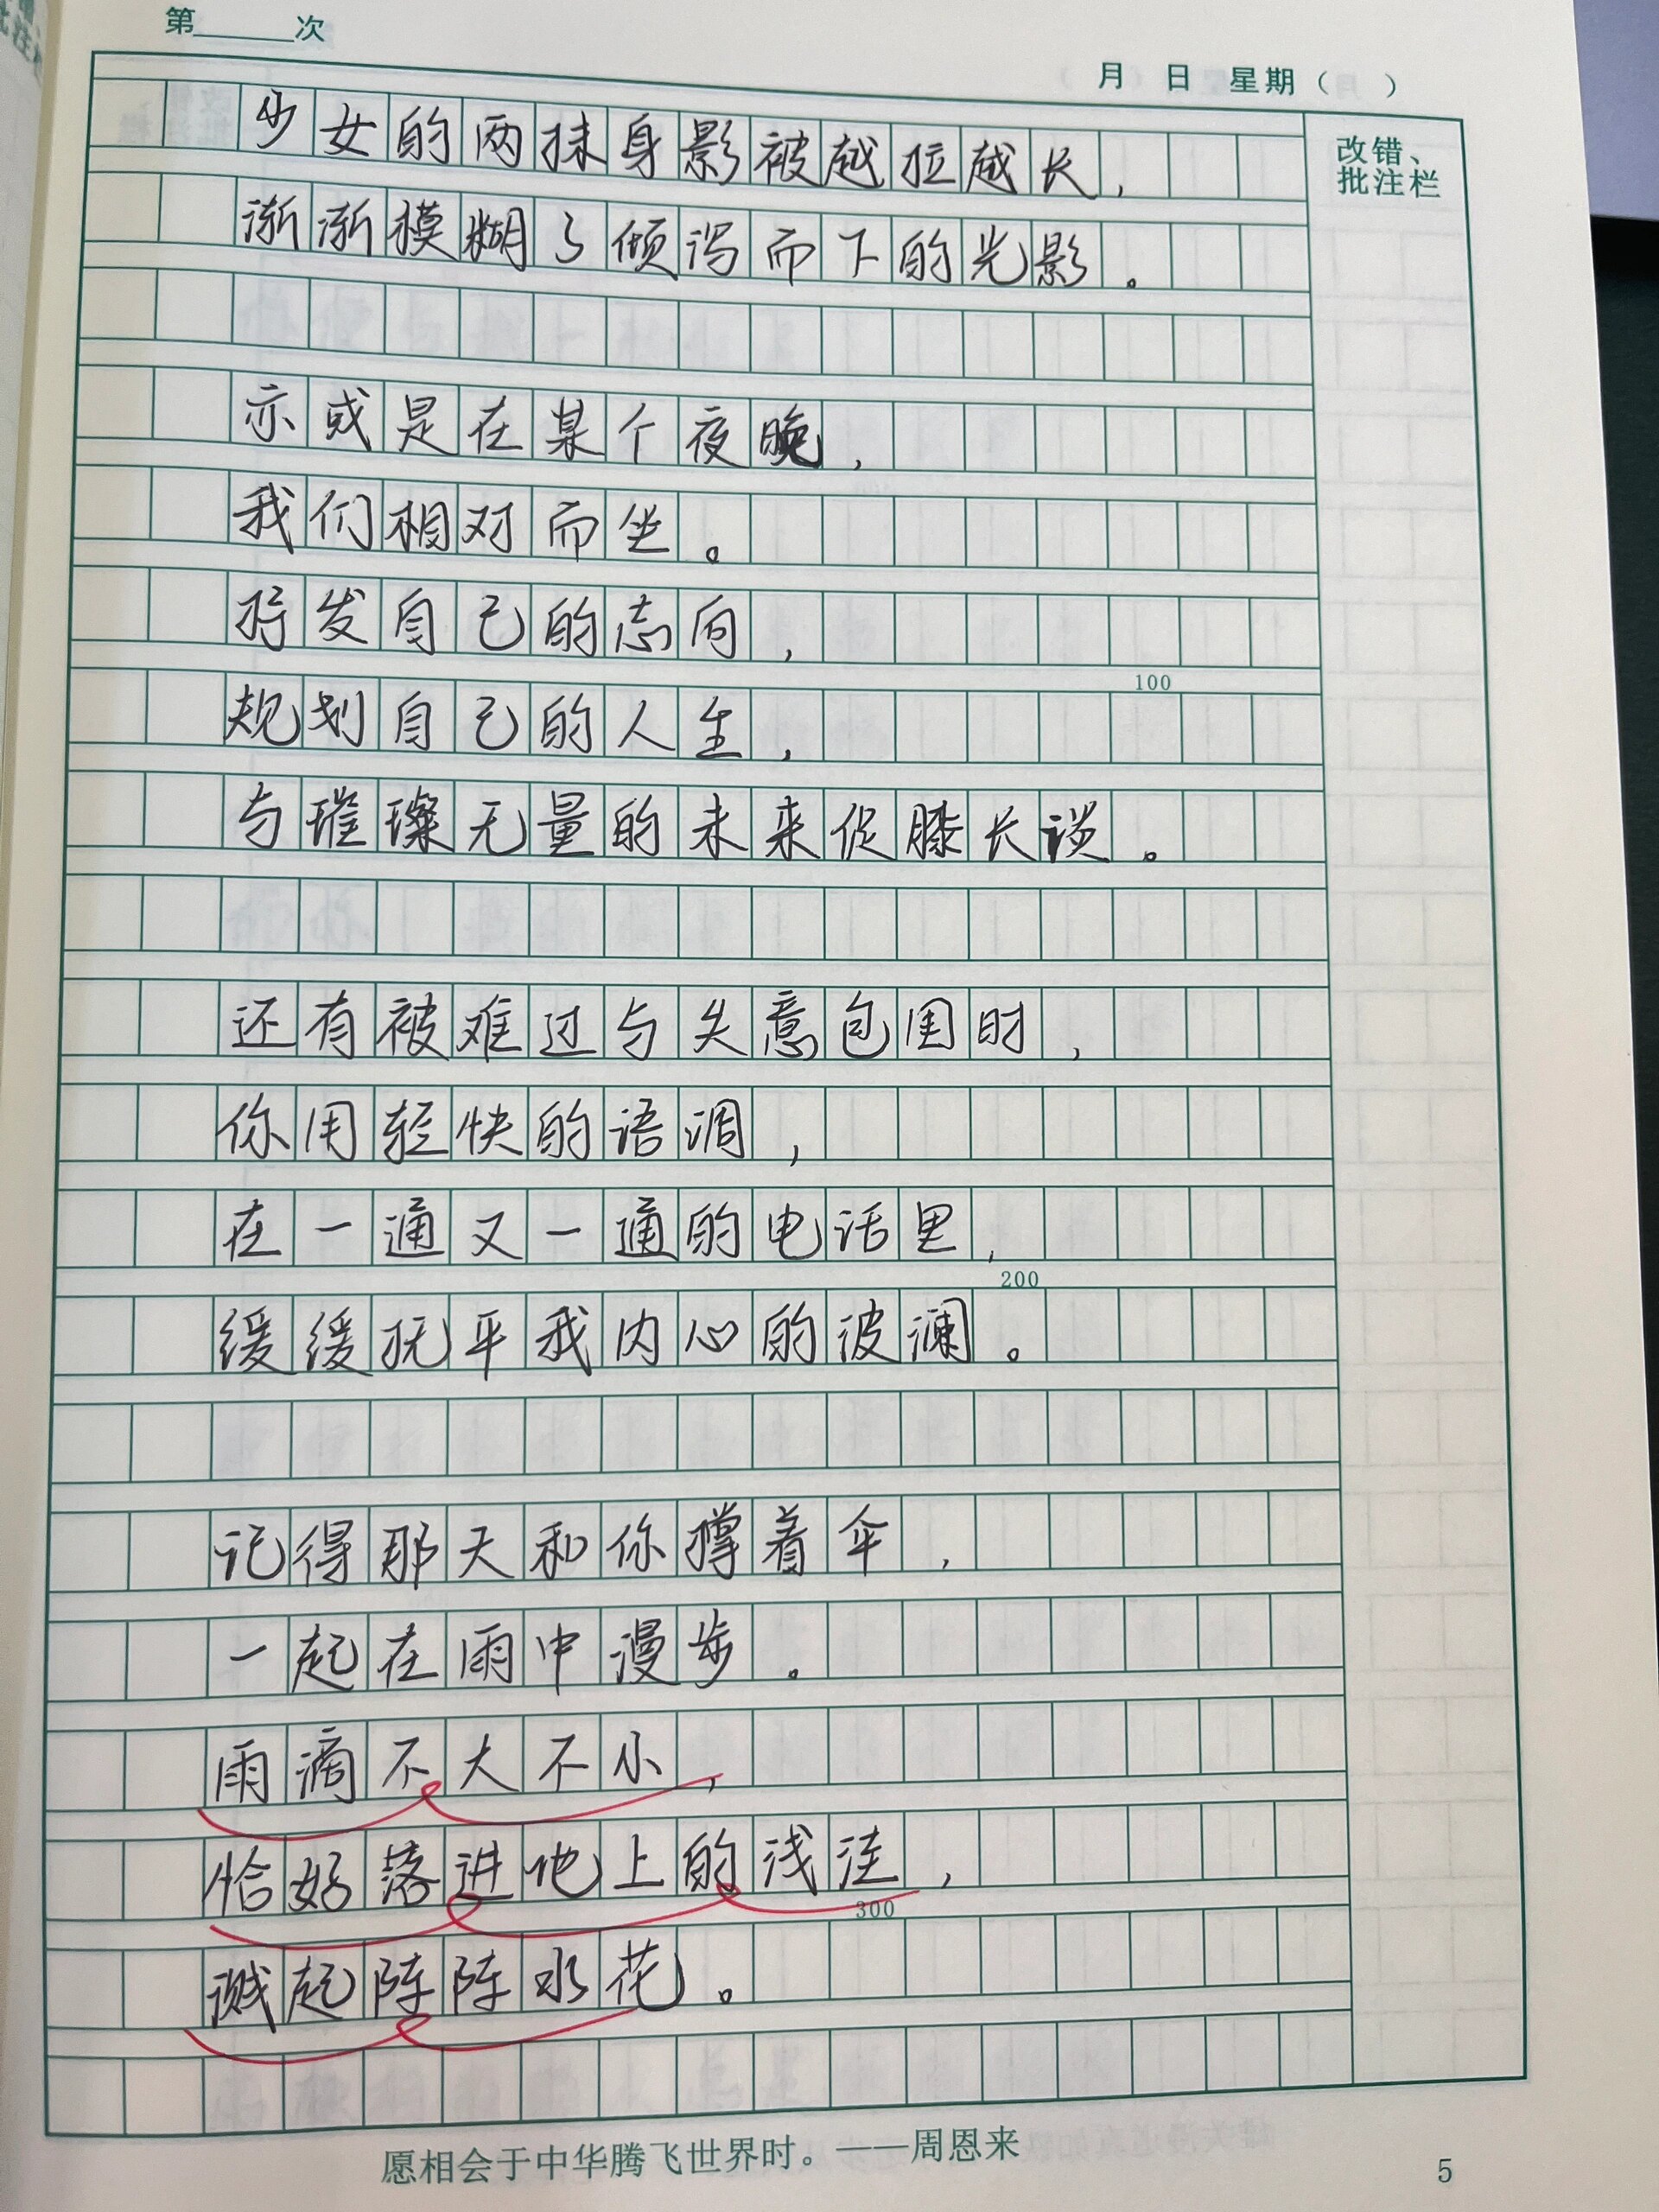 第______次
月 日 星期（ ）
改错、
批注栏
少女的两抹身影被越拉越长，
渐渐模糊了倾泻而下的光影。
亦或是在某个夜晚，
我们相对而坐。
抒发自己的志向，
规划自己的人生，
100
与璀璨无量的未来促膝长谈。
还有被难过与失意包围时，
你用轻快的语调，
在一通又一通的电话里，
200
缓缓抚平我内心的波澜。
记得那天和你撑着伞，
一起在雨中漫步。
雨滴不大不小，
恰好落进地上的浅洼，
300
溅起阵阵水花。
愿相会于中华腾飞世界时。——周恩来
5